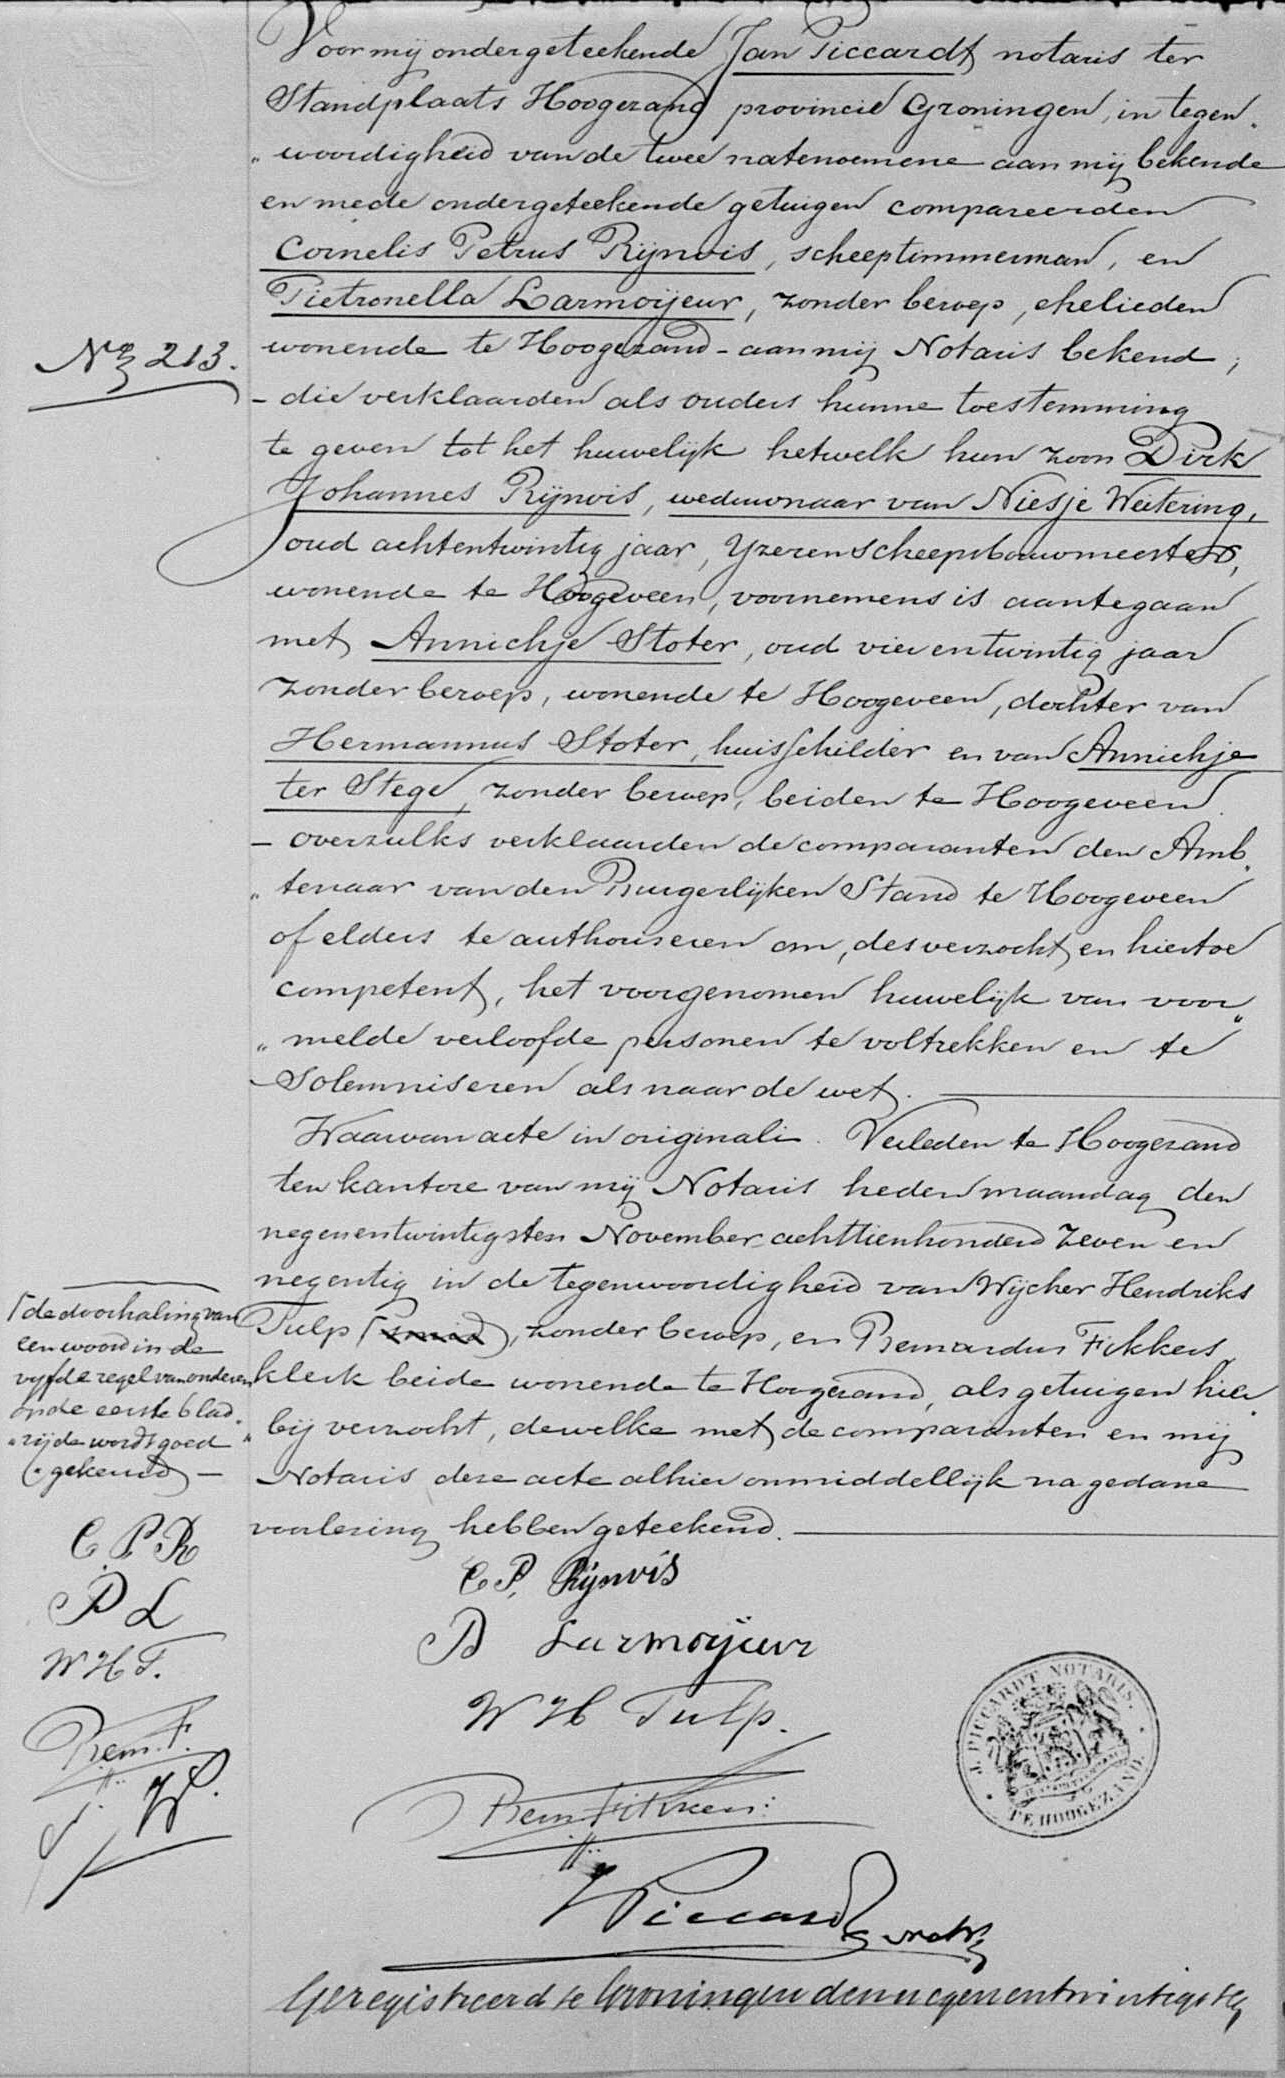 Voor mij ondergeteekende Jan Piccardt notaris ter
Standplaats Hoogezand provincie Groningen, in tegen„
„woordigheid van de twee natenoemene aan mij bekende
en mede ondergeteekende getuigen compareerden
Cornelis Petrus Rijnvis, scheeptimmerman, en
Pietronella Larmoijeur, zonder beroep, ehelieden
wonende te Hoogezand - aan mij Notaris bekend;
No 213.
- die verklaarden als ouders hunne toestemming
te geven tot het huwelijk hetwelk hun zoon Dirk
Johannes Rijnvis, weduwnaar van Niesje Weitering,
oud achtentwintig jaar, Yzerenscheepsbouwmeester,
wonende te Hoogeveen, voornemens is aantegaan
met Annichje Stoter, oud vierentwintig jaar
zonder beroep, wonende te Hoogeveen, dochter van
Hermannus Stoter, huisschilder en van Annichje
ter Stege, zonder beroep, beiden te Hoogeveen.
- overzulks verklaarden de comparanten den Amb„
„tenaar van den Burgerlijken Stand te Hoogeveen
of elders te authoriseren om, des verzocht en hiertoe
competent, het voorgenomen huwelijk van voor„
„melde verloofde personen te voltrekken en te
Solemniseren als naar de wet.
Waarvan acte in originali. Verleden te Hoogezand
ten kantore van mij Notaris heden maandag den
negenentwintigsten November achttienhonderd zeven en
negentig in de tegenwoordigheid van Wijcher Hendriks
Tulp, zonder beroep, en Bernardus Fikkers
klerk beide wonende te Hoogezand, als getuigen hier„
„bij verzocht, dewelke met de comparanten en mij
Notaris deze acte alhier onmiddellijk na gedane
voorlezing hebben geteekend.
de doorhaling van
een woord in de
vijfde regel van onderen
op de eerste blad„
„zijde wordt goed
gekeurd -
C. P. R
P L
W H T.
Bern. F.
J P.
C P. Rijnvis
P Larmoyeur
W H Tulp.
Bern Fikkers:
J Piccardt nots
J. PICCARDT NOTARIS.
TE HOOGEZAND.
Geregistreerd te Groningen den negenentwintigsten